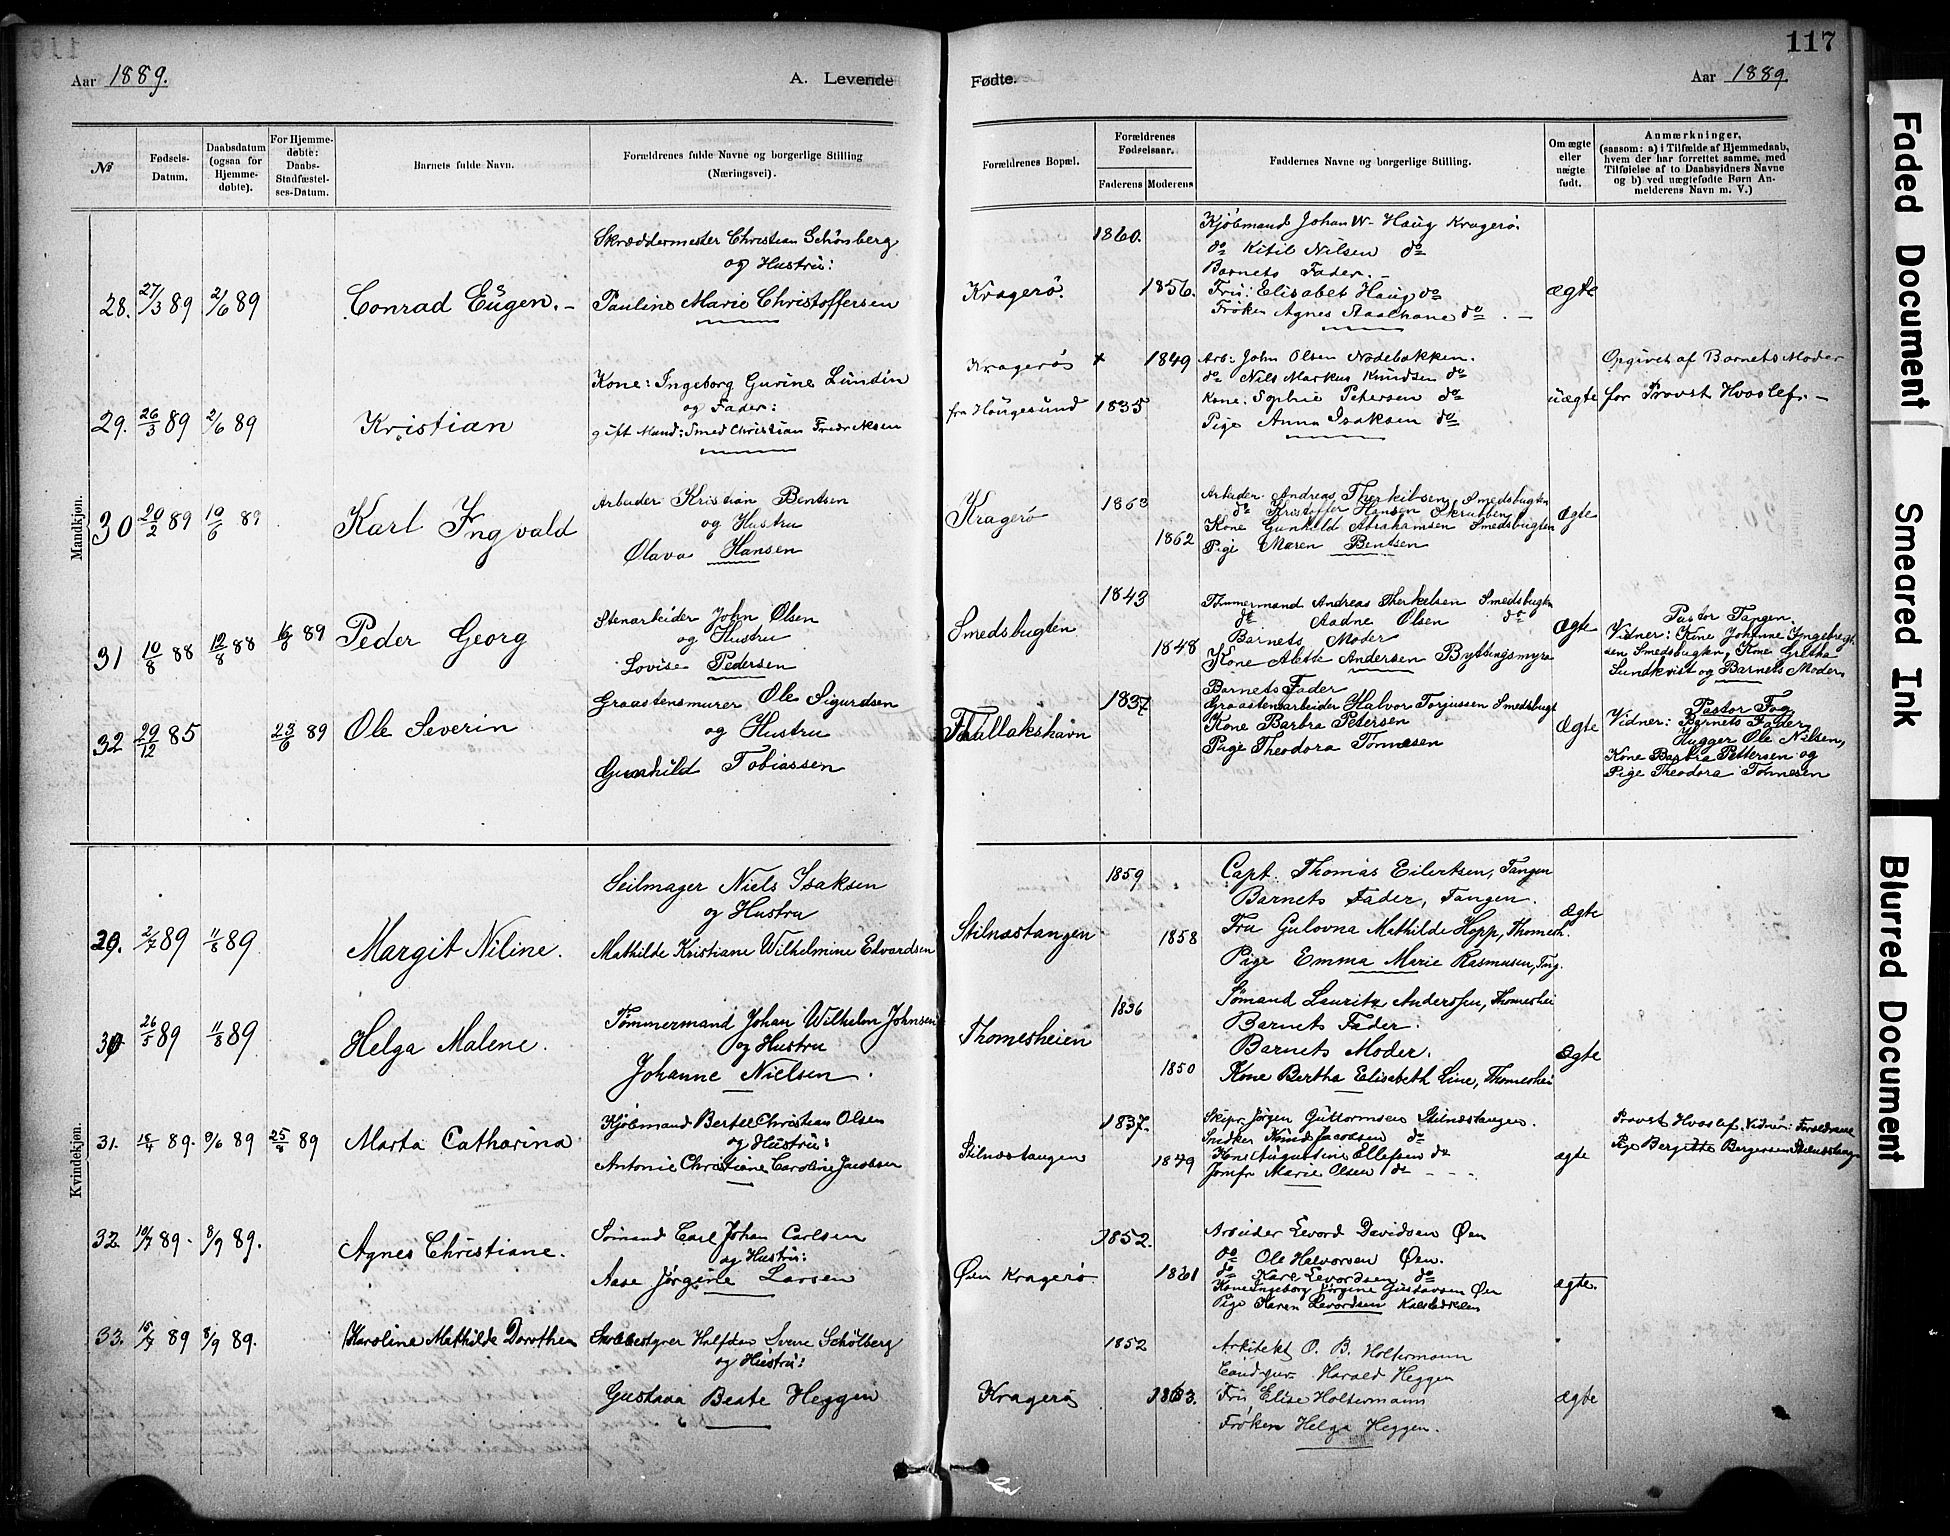 117
Aar 1889.
A. Levende
Fødte.
Aar 1889.
No
Fødsels-Datum.
Daabsdatum (ogsaa for Hjemme-døbte).
For Hjemme-døbte: Daabs-Stadfæstel-ses-Datum.
Barnets fulde Navn.
Forældrenes fulde Navne og borgerlige Stilling (Næringsvei).
Forældrenes Bopæl.
Forældrenes Fødselsaar.
Faderens
Moderens
Faddernes Navne og borgerlige Stilling.
Om ægte eller uægte født.
Anmærkninger,
(saasom: a) i Tilfælde af Hjemmedaab,
hvem der har forrettet samme, med
Tilføielse af to Daabsvidners Navne
og b) ved uægtefødte Børn An-
melderens Navn m. V.)
Mandkjøn.
28. 27/3 89 2/6 89
Conrad Eugen. -
Skræddermester Christian Schönberg
og Hustru:
Pauline Marie Christoffersen
Kragerö.
1860.
1856.
Kjöbmand Johan W. Haug Kragerö.
do Kitil Nilsen do
Barnets Fader. -
Fru: Elisabet Haug do
Fröken Agnes Staalhane do. -
ægte
29. 26/3 89 2/6 89
Kristian
Kone: Ingeborg Gurine Lundin
og Fader:
gift Mand: Smed Christian Fredriksen
Kragerös +
fra Haugesund
1849
1835
Arb: John Olsen Nodebakken.
do Nils Markus Knudsen do
Kone: Sophie Petersen do
Pige Anna Isaksen do
uægte
Opgivet af Barnets Moder
for Provst Hvoslef. -
30 20/2 89 10/6 89
Karl Ingvald
Arbeider Kristian Bentsen
og Hustru
Olava Hansen
Kragerö
1863
1862
Arbeider Andreas Therkilsen Smedsbugten
do Kristoffer Hansen Skrubben
Kone Gunhild Abrahamsen Smedsbugten
Pige Maren Bentsen
Ægte
31 10/8 88 12/8 88 89
Peder Georg
Stenarbeider John Olsen
og Hustru
Lovise Pedersen
Smedsbugten
1843
1848
Tömmermand Andreas Therkelsen Smedsbugten
do Aadne Olsen do
Barnets Moder
Kone Alette Andersen Byttingsmyra
Ægte
Pastor Tangen.
Vidner: Kone Johanne Ingebregt-
sen Smedsbugten, Kone Gretha
Lundkvist og Barnets Moder
32 29/12 85 23/6 89
Ole Severin
Graastensmurer Ole Sigurdsen
og Hustru
Gunhild Tobiassen
Thullakshavn
1837
Barnets Fader
Graastensarbeider Halvor Torjussen Smedsbugt
Kone Barbra Petersen
Pige Theodora Tönnesen
Ægte
Pastor Fog
Vidner: Barnets Fader,
Hugger Ole Nilsen,
Kone Barbra Pettersen og
Pige Theodora Tönnesen
Kvindekjøn.
29. 2/7 89 11/8 89
Margit Niline.
Seilmager Niels Isaksen
og Hustru
Mathilde Kristiane Wilhelmine Edvardsen
Stilnæstangen
1859
1858
Capt. Thomas Eilertsen, Tangen
Barnets Fader, Tangen.
Fru Gulovna Mathilde Hopp, Thomesh.
Pige Emma Marie Rasmusen, Tng.
Ægte
30 26/5 89 11/8 89
Helga Malene.
Tömmermand Johan Wilhelm Johnsen
og Hustru
Johanne Nielsen.
Thomesheien
1836
1850
Sömand Lauritz Anderssen, Thomeshei
Barnets Fader.
Barnets Moder.
Kone Bertha Elisabeth Line, Thomeshei
Ægte
31. 18/4 89. 9/6 89 25/8 89
Marta Catharina
Kjöbmand Bertel Christian Olsen
og Hustru:
Antonie Christiane Caroline Jacobsen
Stilnæstangen
1837.
1849
Skipr. Jörgen Guttormsen Stilnæstangen.
Sndker Knud Jacobsen do
Kone Augustine Ellefsen do
Jomfr Marie Olsen do - - -
ægte
Provst Hvoslef. Vidner: Forældrene
Pige Bergitte Bergersen Stilnæstang
32. 10/7 89. 8/9 89.
Agnes Christiane.
Sömand Carl Johan Carlsen
og Hustru:
Aase Jörgine Larsen
Öen Kragerö
1852.
1861
Arbeider Levord Davidsen Öen
do Ole Halvorsen Öen.
do Karl Levordsen do
Kone Ingeborg Jörgine Gustavsen Öen
Pige Karen Levordsen
ægte.
33. 15/7 89 8/9 89.
Karoline Mathilde Dorothea
Skolebestyrer Halfdan Svane Schölberg
og Hustru:
Gustava Beate Heggen
Kragerö
1852
1863.
Arkitekt O. B. Holtermann
Harald Heggen
Fru Elise Holtermann
Fröken Helga Heggen.
ægte
Faded Document
Smeared Ink
Blurred Document